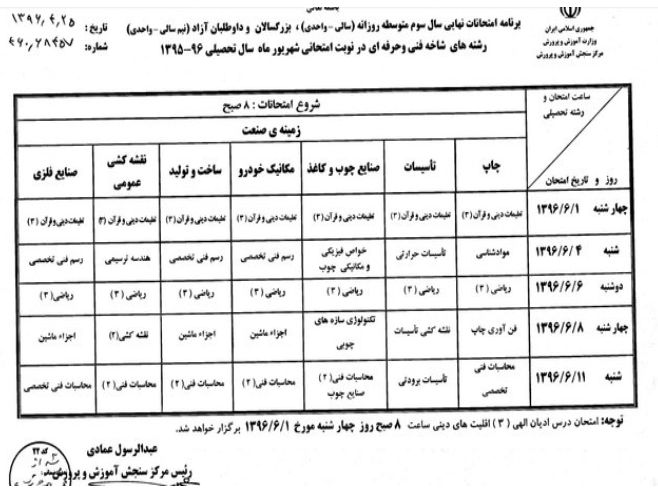 باسمه تعالی
جمهوری اسلامی ایران
وزارت آموزش و پرورش
مرکز سنجش آموزش و پرورش
برنامه امتحانات نهایی سال سوم متوسطه روزانه (سالی - واحدی) ، بزرگسالان و داوطلبان آزاد (نیم سالی - واحدی)
رشته های شاخه فنی وحرفه ای در نوبت امتحانی شهریور ماه سال تحصیلی ۹۶-۱۳۹۵
تاریخ : ۱۳۹۶,۴,۲۵
شماره: ۴۶۰,۲۸۴۵۷
ساعت امتحان و رشته تحصیلی
روز و تاریخ امتحان
شروع امتحانات : ۸ صبح
زمینه ی صنعت
چاپ تأسیسات صنایع چوب و کاغذ مکانیک خودرو ساخت و تولید نقشه کشی عمومی صنایع فلزی
چهار شنبه ۱۳۹۶/۶/۱ تعلیمات دینی و قرآن (۳) تعلیمات دینی و قرآن (۳) تعلیمات دینی و قرآن (۳) تعلیمات دینی و قرآن (۳) تعلیمات دینی و قرآن (۳) تعلیمات دینی و قرآن (۳) تعلیمات دینی و قرآن (۳)
شنبه ۱۳۹۶/۶/۴ موادشناسی تأسیسات حرارتی خواص فیزیکی و مکانیکی چوب رسم فنی تخصصی رسم فنی تخصصی هندسه ترسیمی رسم فنی تخصصی
دوشنبه ۱۳۹۶/۶/۶ ریاضی (۳) ریاضی (۳) ریاضی (۳) ریاضی (۳) ریاضی (۳) ریاضی (۳) ریاضی (۳)
چهار شنبه ۱۳۹۶/۶/۸ فن آوری چاپ نقشه کشی تأسیسات تکنولوژی سازه های چوبی اجزاء ماشین اجزاء ماشین نقشه کشی(۲) اجزاء ماشین
شنبه ۱۳۹۶/۶/۱۱ محاسبات فنی تخصصی تأسیسات برودتی محاسبات فنی (۲) صنایع چوب محاسبات فنی(۲) محاسبات فنی (۲) محاسبات فنی (۲) محاسبات فنی تخصصی
توجه: امتحان درس ادیان الهی (۳) اقلیت های دینی ساعت ۸ صبح روز چهار شنبه مورخ ۱۳۹۶/۶/۱ برگزار خواهد شد.
عبدالرسول عمادی
رئیس مرکز سنجش آموزش و پرورش
کد ۲۲